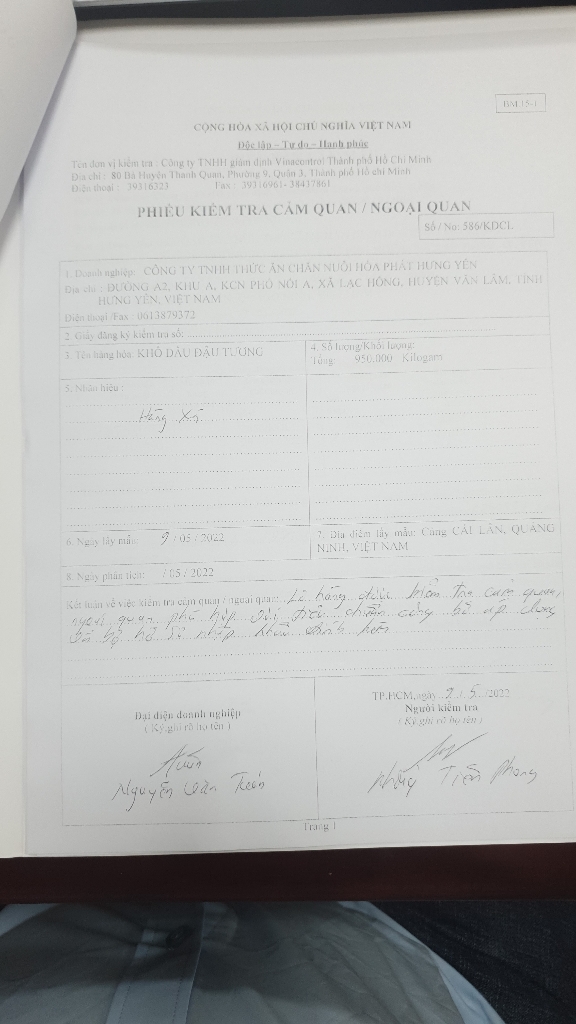 BM.15-1
CỘNG HÒA XÃ HỘI CHỦ NGHĨA VIỆT NAM
Độc lập – Tự do – Hạnh phúc
Tên đơn vị kiểm tra : Công ty TNHH giám định Vinacontrol Thành phố Hồ Chí Minh
Địa chỉ : 80 Bà Huyện Thanh Quan, Phường 9, Quận 3, Thành phố Hồ chí Minh
Điện thoại : 39316323 Fax : 39316961- 38437861
PHIẾU KIỂM TRA CẢM QUAN / NGOẠI QUAN
Số / No: 586/KDCL
1. Doanh nghiệp: CÔNG TY TNHH THỨC ĂN CHĂN NUÔI HÒA PHÁT HƯNG YÊN
Địa chỉ : ĐƯỜNG A2, KHU A, KCN PHỐ NỐI A, XÃ LẠC HỒNG, HUYỆN VĂN LÂM, TỈNH
HƯNG YÊN, VIỆT NAM
Điện thoại /Fax : 0613879372
2. Giấy đăng ký kiểm tra số:
3. Tên hàng hóa: KHÔ DẦU ĐẬU TƯƠNG
4. Số lượng/Khối lượng:
Tổng: 950.000 Kilogam
5. Nhãn hiệu :
Hàng Xá
6. Ngày lấy mẫu: 9 / 05 / 2022
7. Địa điểm lấy mẫu: Cảng CÁI LÂN, QUẢNG
NINH, VIỆT NAM
8. Ngày phân tích: / 05 / 2022
Kết luận về việc kiểm tra cảm quan / ngoại quan: Lô hàng được kiểm tra cảm quan,
ngoại quan phù hợp với tiêu chuẩn công bố áp dụng
và hồ sơ nhập khẩu
Đại diện doanh nghiệp
( Ký,ghi rõ họ tên )
Nguyễn Văn
TP.HCM,ngày 9 / 5 /2022
Người kiểm tra
( Ký,ghi rõ họ tên )
Tiến Phong
Trang 1